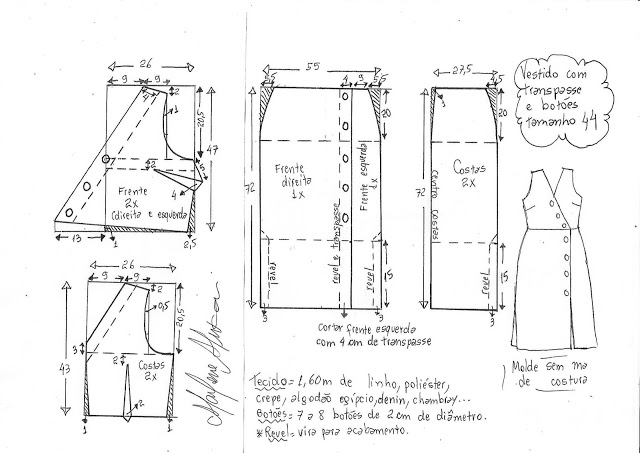 26
9 9
4
2
1
20,5
47
2
3
4
Frente
2x
(direita e esquerda
13
1
2,5
26
9
2
0,5
20,5
43
3
2
Costas
2x
2
1
1
Marlene Mukai
55
5,5
4
9
5,5
20
72
Frente
direita
1x
revel e transpasse
Frente esquerda
1x
revel
revel
15
3
3
Cortar frente esquerda
com 4 cm de transpasse
27,5
4,5
1
20
72
Costas
2x
centro costas
revel
15
3
Vestido com
transpasse
e botões
tamanho 44
Molde sem ma
de costura
Tecido= 1,60m de linho, poliéster,
crepe, algodão egípcio, denin, chambray...
Botões= 7 a 8 botões de 2 cm de diâmetro.
*Revel= vira para acabamento.